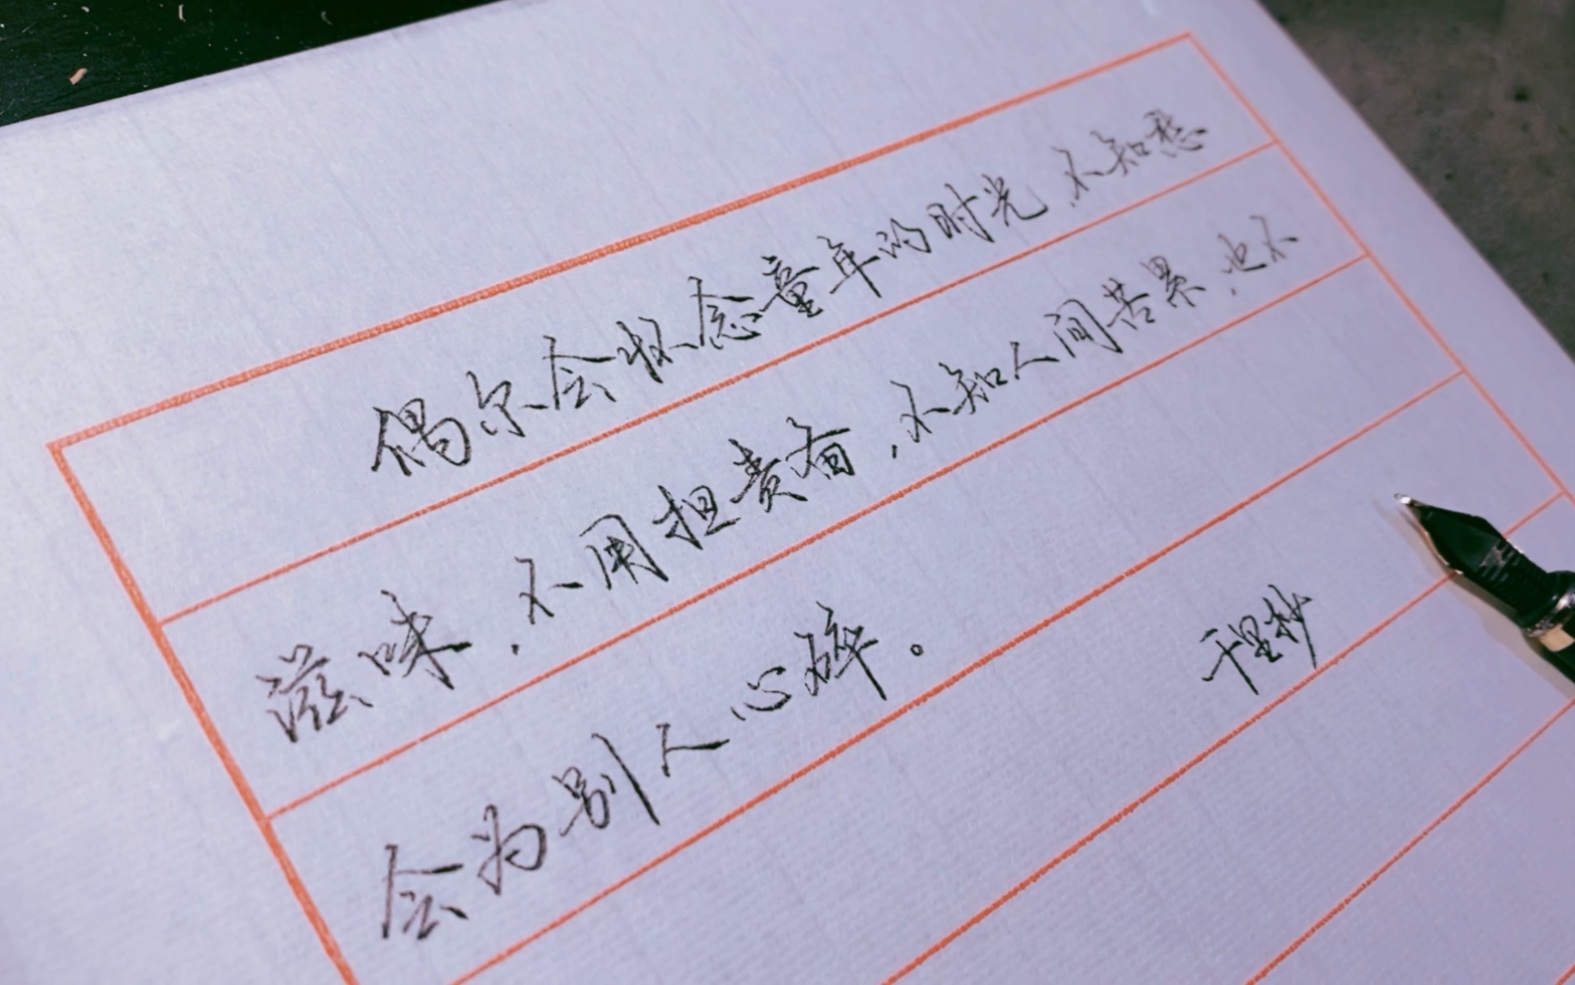 偶尔会怀念童年的时光，不知愁
滋味，不用担责备，不知人间苦累，也不
会为别人心碎。
千里抄